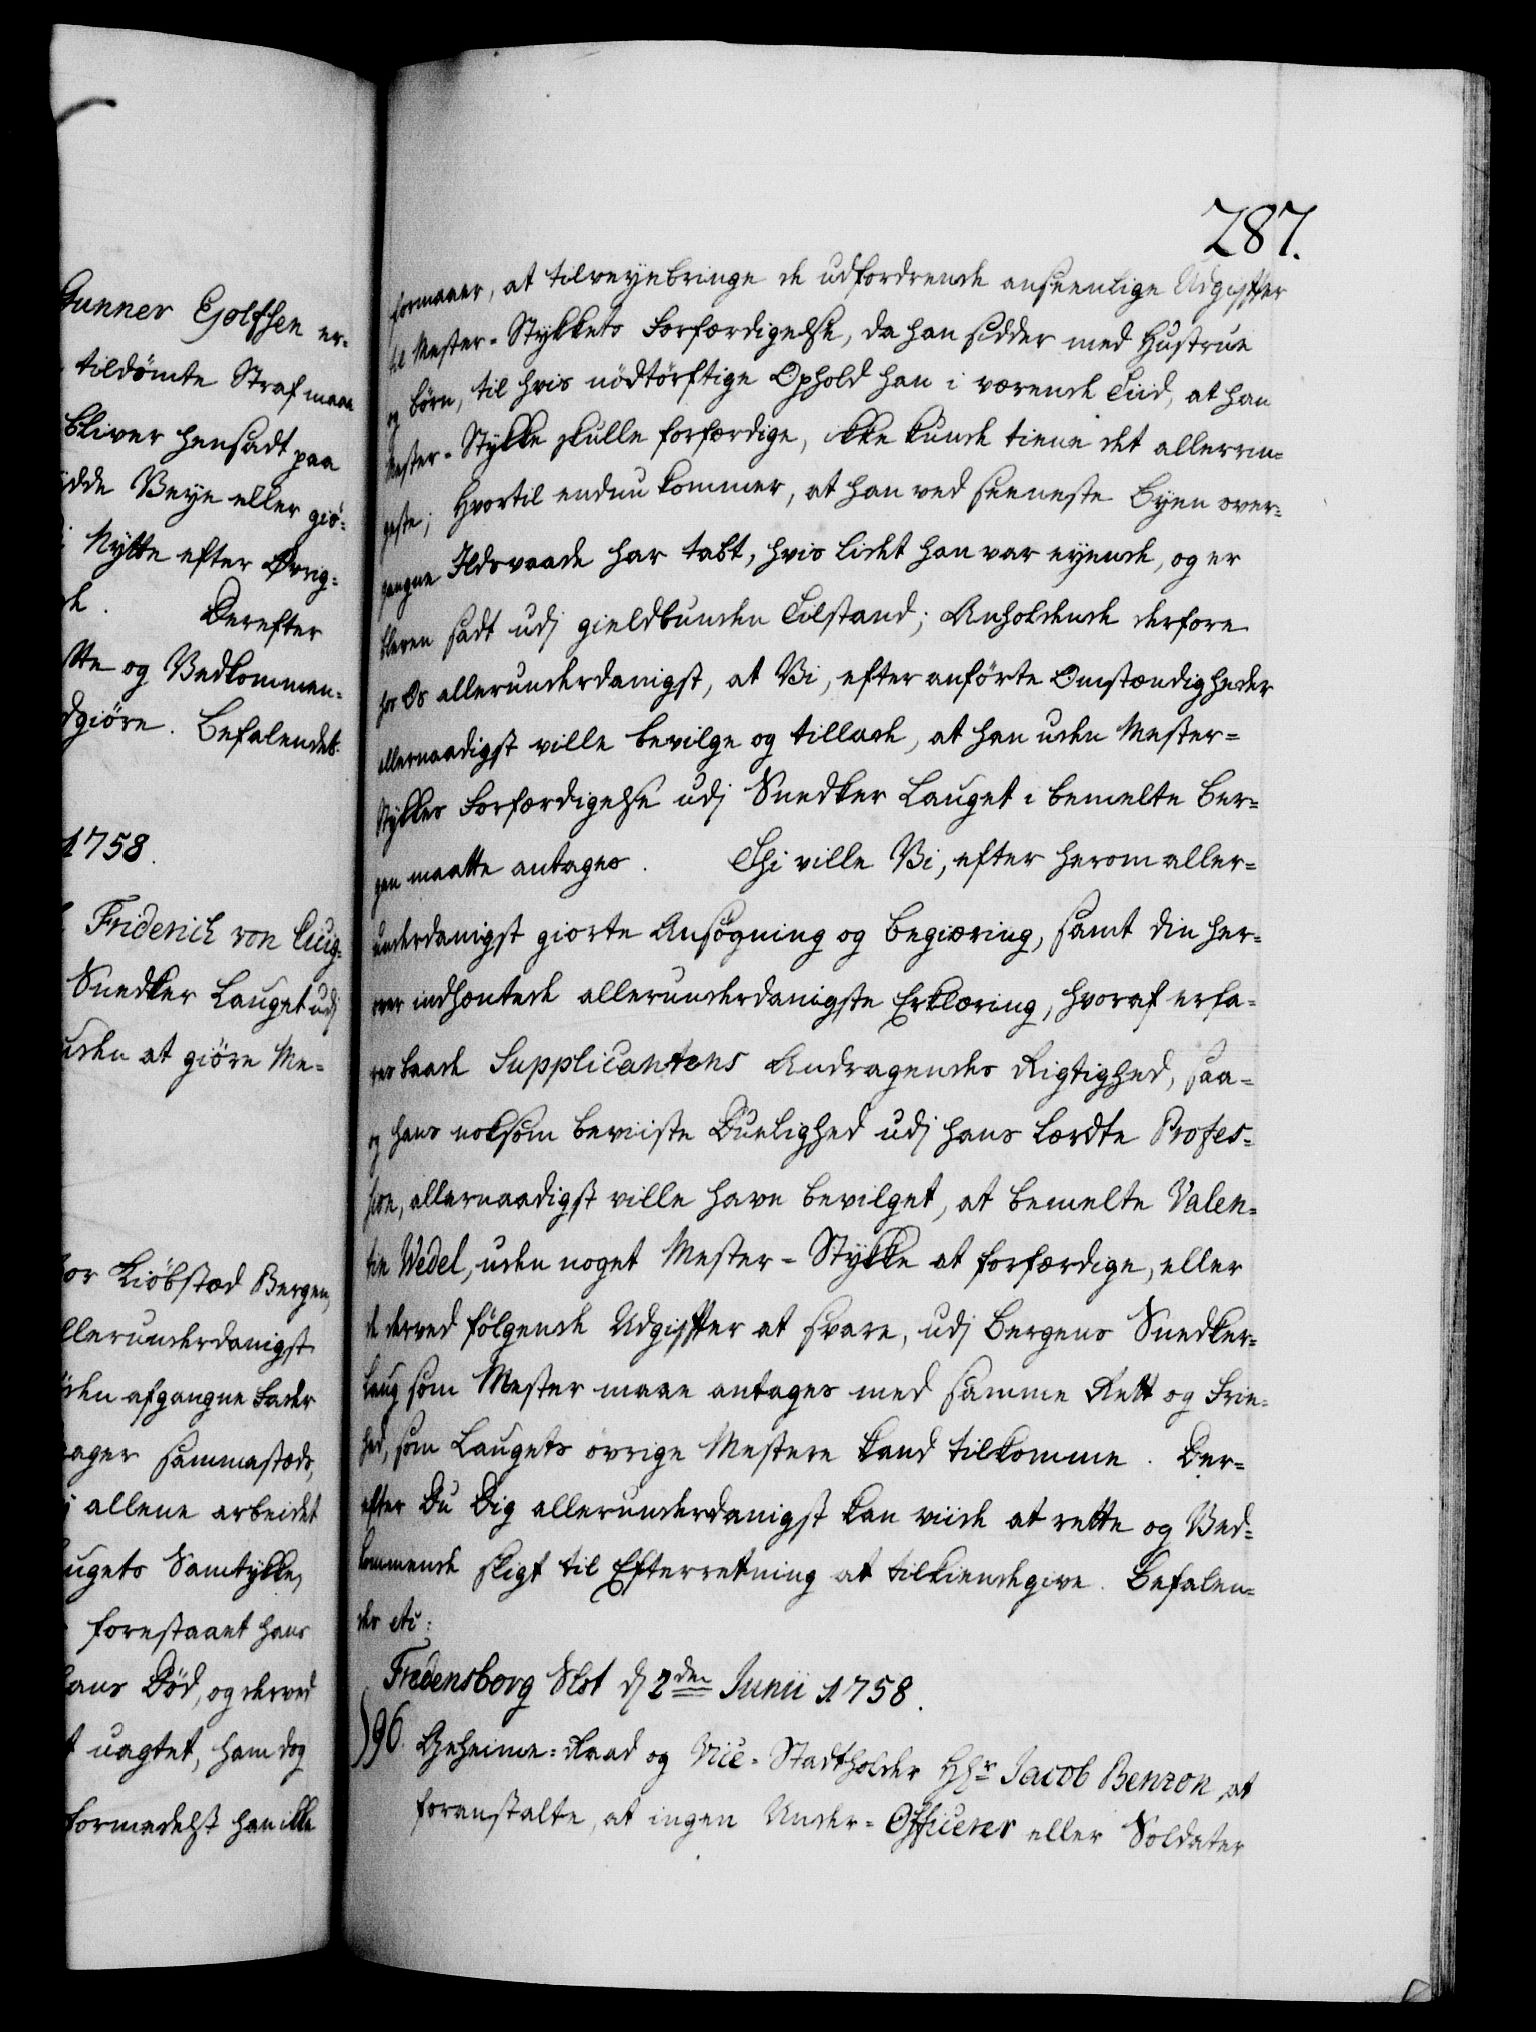 Gunner Ejolfsen er-
tildömte Straf maae
bliver hensadt paa
Veye eller giö-
Nytte efter Øvrig-
Derefter
og Vedkommen-
Befalendes
1758.
Friderich von Cicig-
Snedker Lauget udj
uden at giöre Me-
Kiöbstæd Bergen,
allerunderdanigst
afgangne Fader
sammestæds,
allene arbeidet
Laugets Samtykke,
forestaaet hans
hans Död, og derved
uagtet, ham dog
formedelst han ikke
287.
formaaer, at tilveyebringe de udfordrende anseenlige Udgiffter
til Mester-Stykkets Forfærdigelse, da han sidder med Hustrue
og börn, til hvis nödtörftige Ophold han i værende Tiid, at han
Mester-Stykke skulle forfærdige, ikke kunde tiene det allerrin-
geste; Hvortil endnu kommer, at han ved seeneste Byen over-
gangne Ildsvaade har tabt, hvis lidet han var eyende, og er
bleven sadt udj gieldbunden Tilstand; Anholdende derfore
for Os allerunderdanigst, at Vi, efter anförte Omstændigheder
allernaadigst ville bevilge og tillade, at han uden Mester-
Stykkes Forfærdigelse udj Snedker Lauget i bemelte Ber-
gen maatte antages. Thi ville Vi, efter herom aller-
underdanigst giorte Ansögning og begiæring, samt din her-
over indhentede allerunderdanigste Erklæring, hvoraf erfa-
res baade Supplicantens Andragendes Rigtighed, saa-
og hans noksom beviiste Duelighed udj hans lærdte Profes-
sion, allernaadigst ville have bevilget, at bemelte Valen-
tin Wedel, uden noget Mester-Stykke at forfærdige, eller
de derved fölgende Udgiffter at svare, udj Bergens Snedker-
Laug som Mester maae antages med samme Rett og Frie-
hed, som Laugets övrige Mestere kand tilkomme. Der-
efter Du Dig allerunderdanigst kan viide at rette og Ved-
kommende sligt til Efterretning at tilkiendegive. Befalen-
des etc:
Fredensborg Slot d 2den Junii 1758.
)96. Geheime-Raad og Vice-Stadtholder Hr Jacob Benzon, at
foranstalte, at ingen Under-Officerer eller Soldater